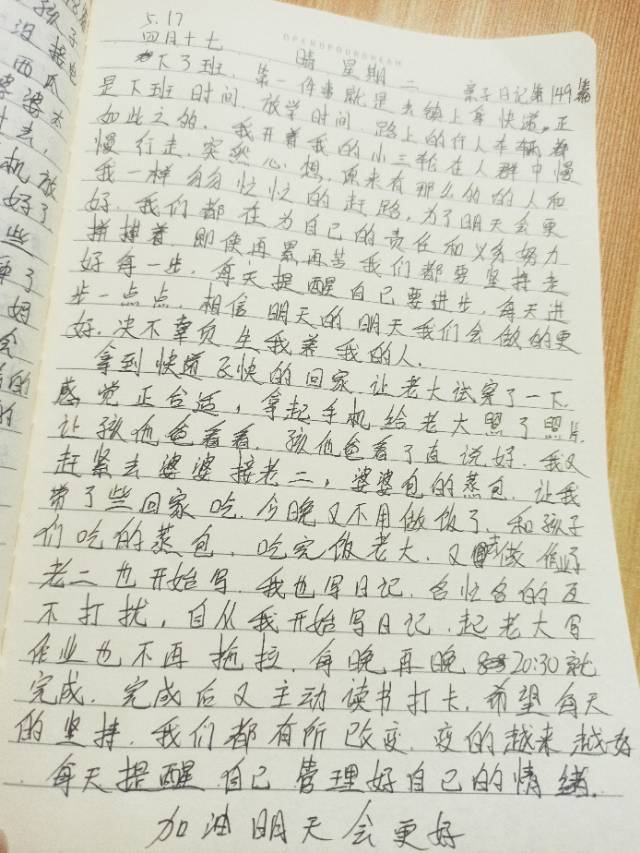 孩子
没接电
西瓜
婆婆太
机放
好了
些
了
好
会
的
的
5.17
四月十七
晴 星期二
亲子日记第149篇
下了班,第一件事就是去镇上拿快递。正
是下班时间,放学时间,路上的行人车辆都
如此之的,我开着我的小三轮在人群中慢
慢行走,突然心想,原来有那么的的人和
我一样匆匆忙忙的赶路,为了明天会更
好,我们都在为自己的责任和义务努力
拼搏着,即使再累再苦我们都要坚持走
好每一步,每天提醒自己要进步,每天进
步一点点,相信明天的明天我们会做的更
好,决不辜负生我养我的人.
拿到快递飞快的回家,让老大试穿了一下,
感觉正合适,拿起手机给老大照了照片,
让孩他爸看看,孩他爸看了直说好.我又
赶紧去婆婆接老二,婆婆包的蒸包,让我
带了些回家吃,今晚又不用做饭了,和孩子
们吃的蒸包,吃完饭老大,又做作业了
老二也开始写,我也写日记,各忙各的互
不打扰,自从我开始写日记,起老大写
作业也不再拖拉,每晚再晚20:30就
完成,完成后又主动读书打卡,希望每天
的坚持,我们都有所改变,变的越来越好
每天提醒自己管理好自己的情绪.
加油明天会更好